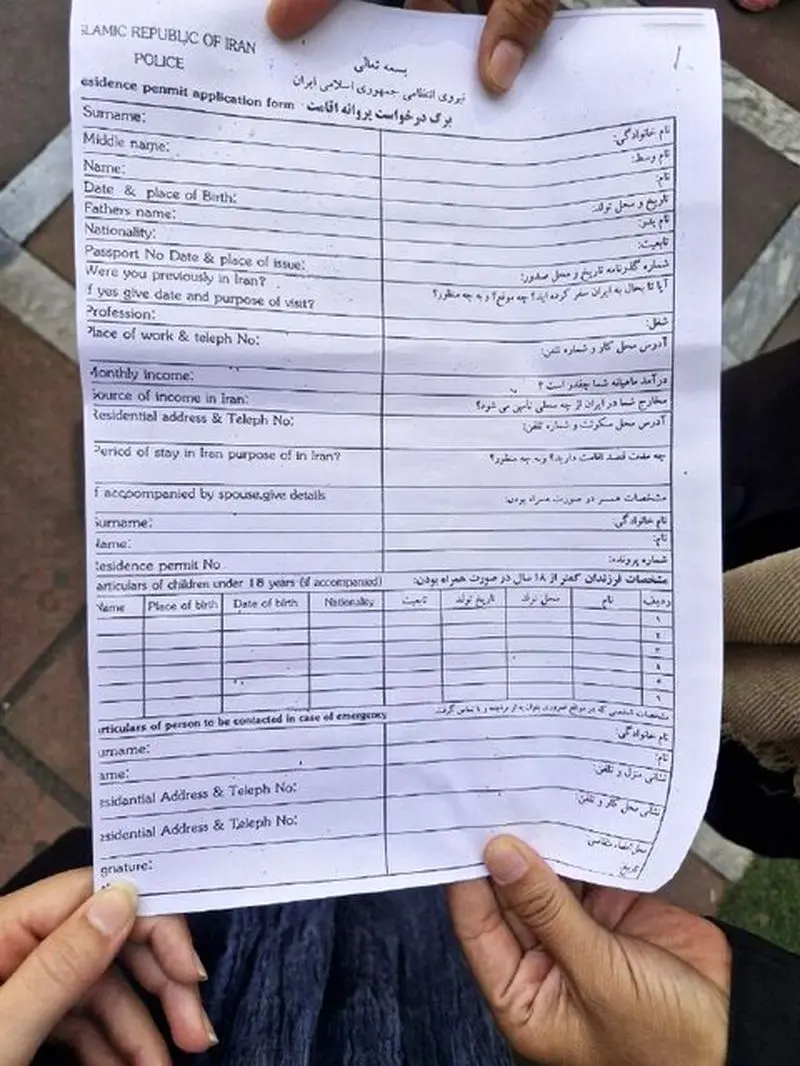 SLAMIC REPUBLIC OF IRAN
POLICE
بسمه تعالی
نیروی انتظامی جمهوری اسلامی ایران
esidence penmit application form برگ درخواست پروانه اقامت
Surname: نام خانوادگی:
Middle name: نام وسط:
Name: نام:
Date & place of Birth: تاریخ و محل تولد:
Fathers name: نام پدر:
Nationality: تابعیت:
Passport No Date & place of issue: شماره گذرنامه تاریخ و محل صدور:
Were you previously in Iran? آیا تا بحال به ایران سفر کرده اید؟ چه موقع؟ و به چه منظور؟
f yes give date and purpose of visit?
Profession: شغل:
Place of work & teleph No: آدرس محل کار و شماره تلفن:
Monthly income: درآمد ماهیانه شما چقدر است ؟
Source of income in Iran: مخارج شما در ایران از چه محلی تأمین می شود؟
Residential address & Teleph No: آدرس محل سکونت و شماره تلفن:
Period of stay in Iran purpose of in Iran? چه مدت قصد اقامت دارید؟ و به چه منظور؟
f accompanied by spouse,give details مشخصات همسر در صورت همراه بودن:
Surname: نام خانوادگی:
Name: نام:
Residence permit No شماره پرونده:
articulars of children under 18 years (if accompanied) مشخصات فرزندان کمتر از ۱۸ سال در صورت همراه بودن:
Name Place of birth Date of birth Nationality تابعیت تاریخ تولد محل تولد نام ردیف
۱
۲
۳
۴
۵
۶
articulars of person to be contacted in case of emergency مشخصات شخصی که در مواقع ضروری بتوان به او مراجعه و یا تماس گرفت.
urname: نام خانوادگی:
ame: نام:
esidential Address & Teleph No: نشانی منزل و تلفن:
esidential Address & Teleph No: نشانی محل کار و تلفن:
gnature: محل امضاء متقاضی:
تاریخ: